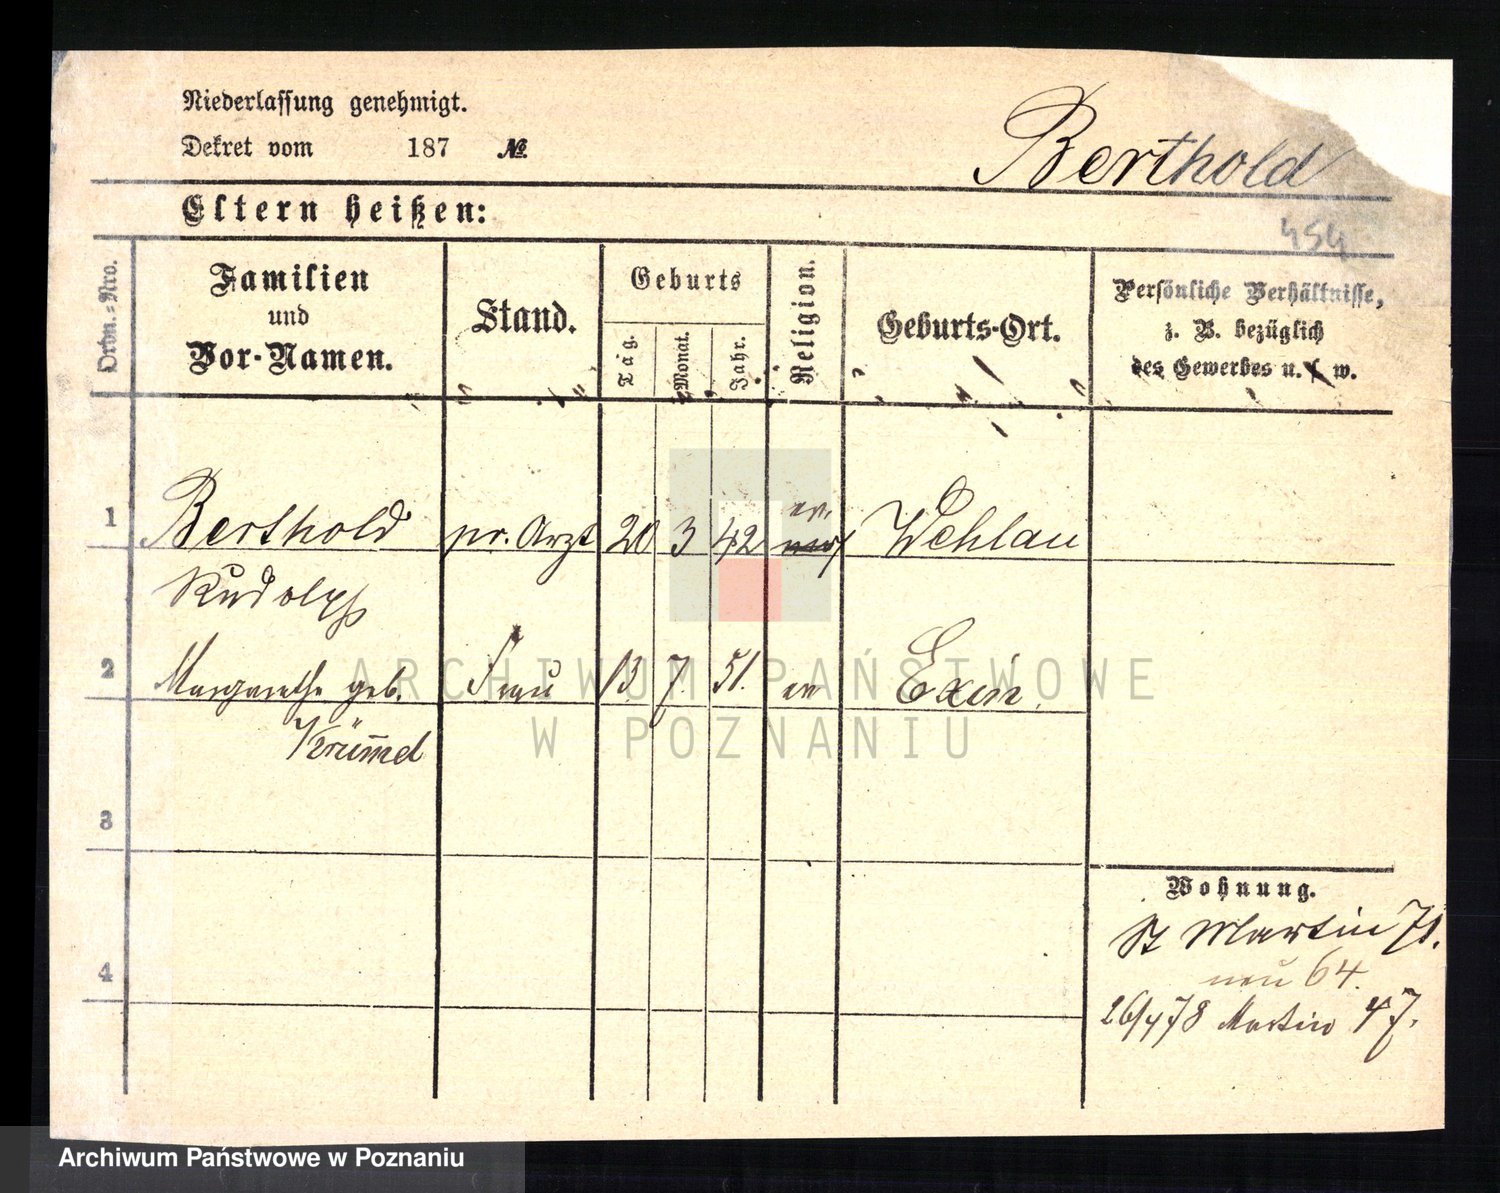 Niederlassung genehmigt.
Dekret vom 187 №
Berthold
Eltern heißen:
454
Ordn.-Nro.
Familien
und
Vor-Namen.
Stand.
Geburts
Tag.
Monat.
Jahr.
Religion.
Geburts-Ort.
Persönliche Verhältnisse,
z. B. bezüglich
des Gewerbes u. s. w.
1 Berthold pr. Arzt 20 3 42 ev. Wehlau
Rudolph
2 Margarethe geb. Frau 13 7. 51. ev Exin.
Krümmel
3
4
Wohnung.
St Martin 71.
neu 64.
26/4 78 Martin 47.
ARCHIWUM PAŃSTWOWE
W POZNANIU
Archiwum Państwowe w Poznaniu